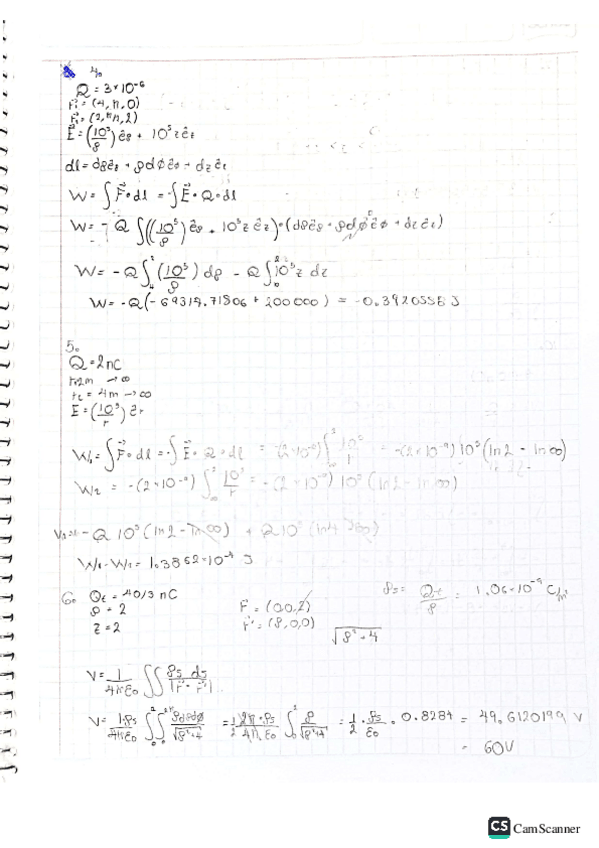 4.
Q = 3*10^-6
r⃗₁ = (4, π, 0)
E⃗ = (10^5/ρ) êρ + 10^5 z êz
dl = dρêρ + ρdφêφ + dz êz
W = ∫F⃗·dl = -∫E⃗·Q·dl
W = -Q ∫((10^5/ρ) êρ + 10^5 z êz)·(dρêρ + ρdφêφ + dz êz)
W = -Q∫₄² (10^5/ρ) dρ - Q∫₀² 10^5 z dz
W = -Q(-69314.71806 + 200000) = -0.3920558 J
5.
Q = 2nC
r=2m → ∞
r₂ = 4m → ∞
E = (10^5/r) êr
W₁ = ∫F⃗·dl = -∫E⃗·Q·dl = -(2*10^-9)∫ 10^5/r = -(2*10^-9) 10^5 (ln2 - ln∞)
W₂ = -(2*10^-9) ∫ 10^5/r = -(2*10^-9) 10^5 (ln2 - ln∞)
- Q 10^5 (ln2 - ln∞) + Q 10^5 (ln4
W₁ - W₂ = 1.3862*10^-4 J
6. Qt = 40/3 nC
ρ = 2
z = 2
r⃗ = (0,0,2)
r⃗' = (ρ,0,0)
√ρ²+4
ρs = Qt/ρ = 1.06*10^-9 C/m²
V = 1/4πε₀ ∫∫ ρs ds/|r⃗ - r⃗'|
V = 1·ρs/4πε₀ ∫₀² ∫₀^2π ρdρdφ/√ρ²+4 = 1/2 2π·ρs/4πε₀ ∫₀² ρ/√ρ²+4 = 1/2 · ρs/ε₀ · 0.8284 = 49.6120199 V
= 60V
CS CamScanner